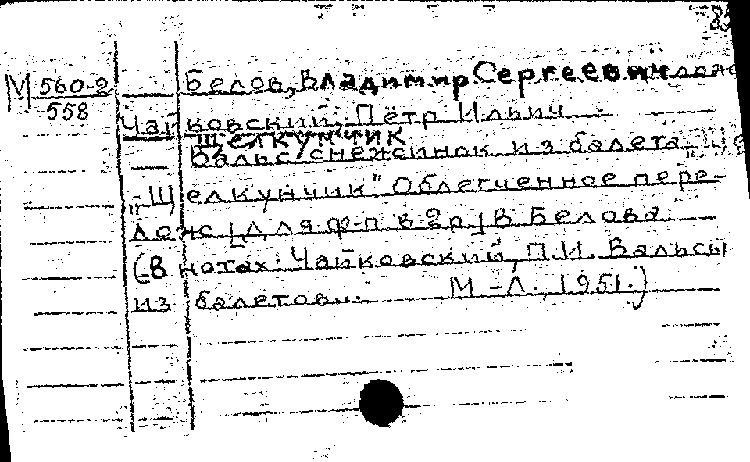 М 560-2
558
Белов, Владимир Сергеевич
Чайковский, Пётр Ильич
Щелкунчик
Вальс снежинок из балета
„Щелкунчик" Облегченное пере-
лож. [для ф-п в 2р] В Белова
(В нотах: Чайковский, П.И. Вальсы
из балетов... М.-Л., 1951.)